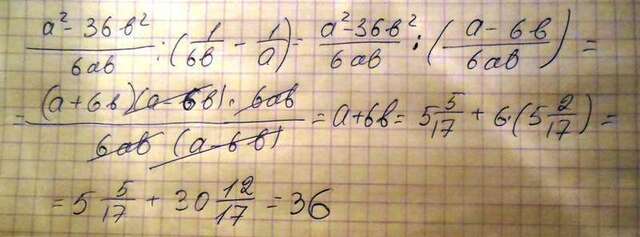 (a² - 36в²)/(6aв) : (1/(6в) - 1/a) = (a² - 36в²)/(6aв) : ((a - 6в)/(6aв)) =
= ((a + 6в)(a - 6в) · 6aв)/(6aв (a - 6в)) = a + 6в = 5 5/17 + 6 · (5 2/17) =
= 5 5/17 + 30 12/17 = 36